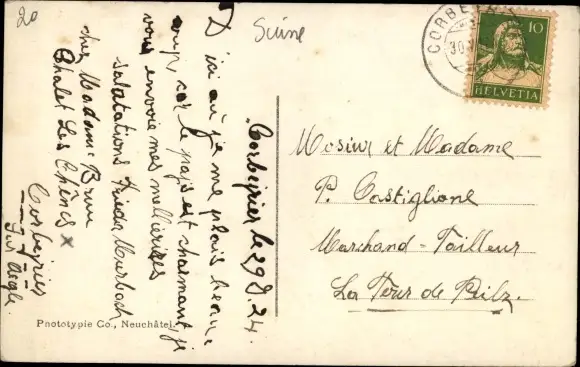 20
Suisse
CORBEYRIER
30.
10
HELVETIA
Corbeyrier le 29.8.24.
D'ici où je me plais beau-
coup, car le pays est charmant, je
vous envoie mes meilleures
salutations Frieda Murbach
chez Madame Brun
Chalet Les Chênes
Corbeyrier
sur Aigle.
Mosieur et Madame
P. Castiglione
Marchand-Tailleur
La Tour de Peilz.
Phototypie Co., Neuchâtel.